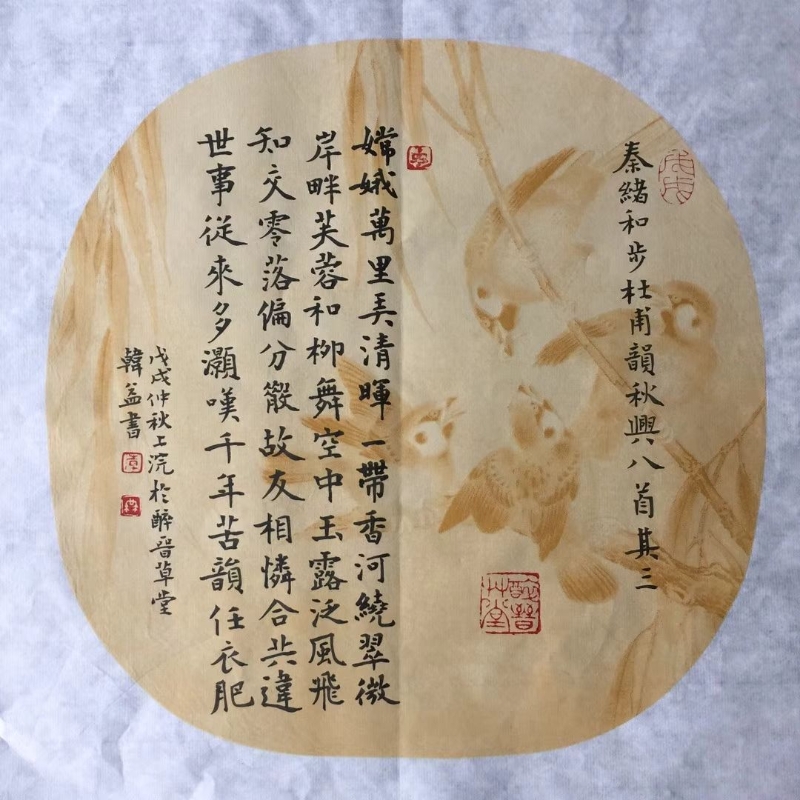 秦緒和步杜甫韻秋興八首其三
嫦娥萬里弄清暉一帶香河繞翠微
岸畔芙蓉和柳舞空中玉露泛風飛
知交零落偏分散故友相憐合共違
世事從來多灝嘆千年苦韻任衣肥
戊戌仲秋上浣於醉晉草堂
韓益書
戊戌
醉晉草堂